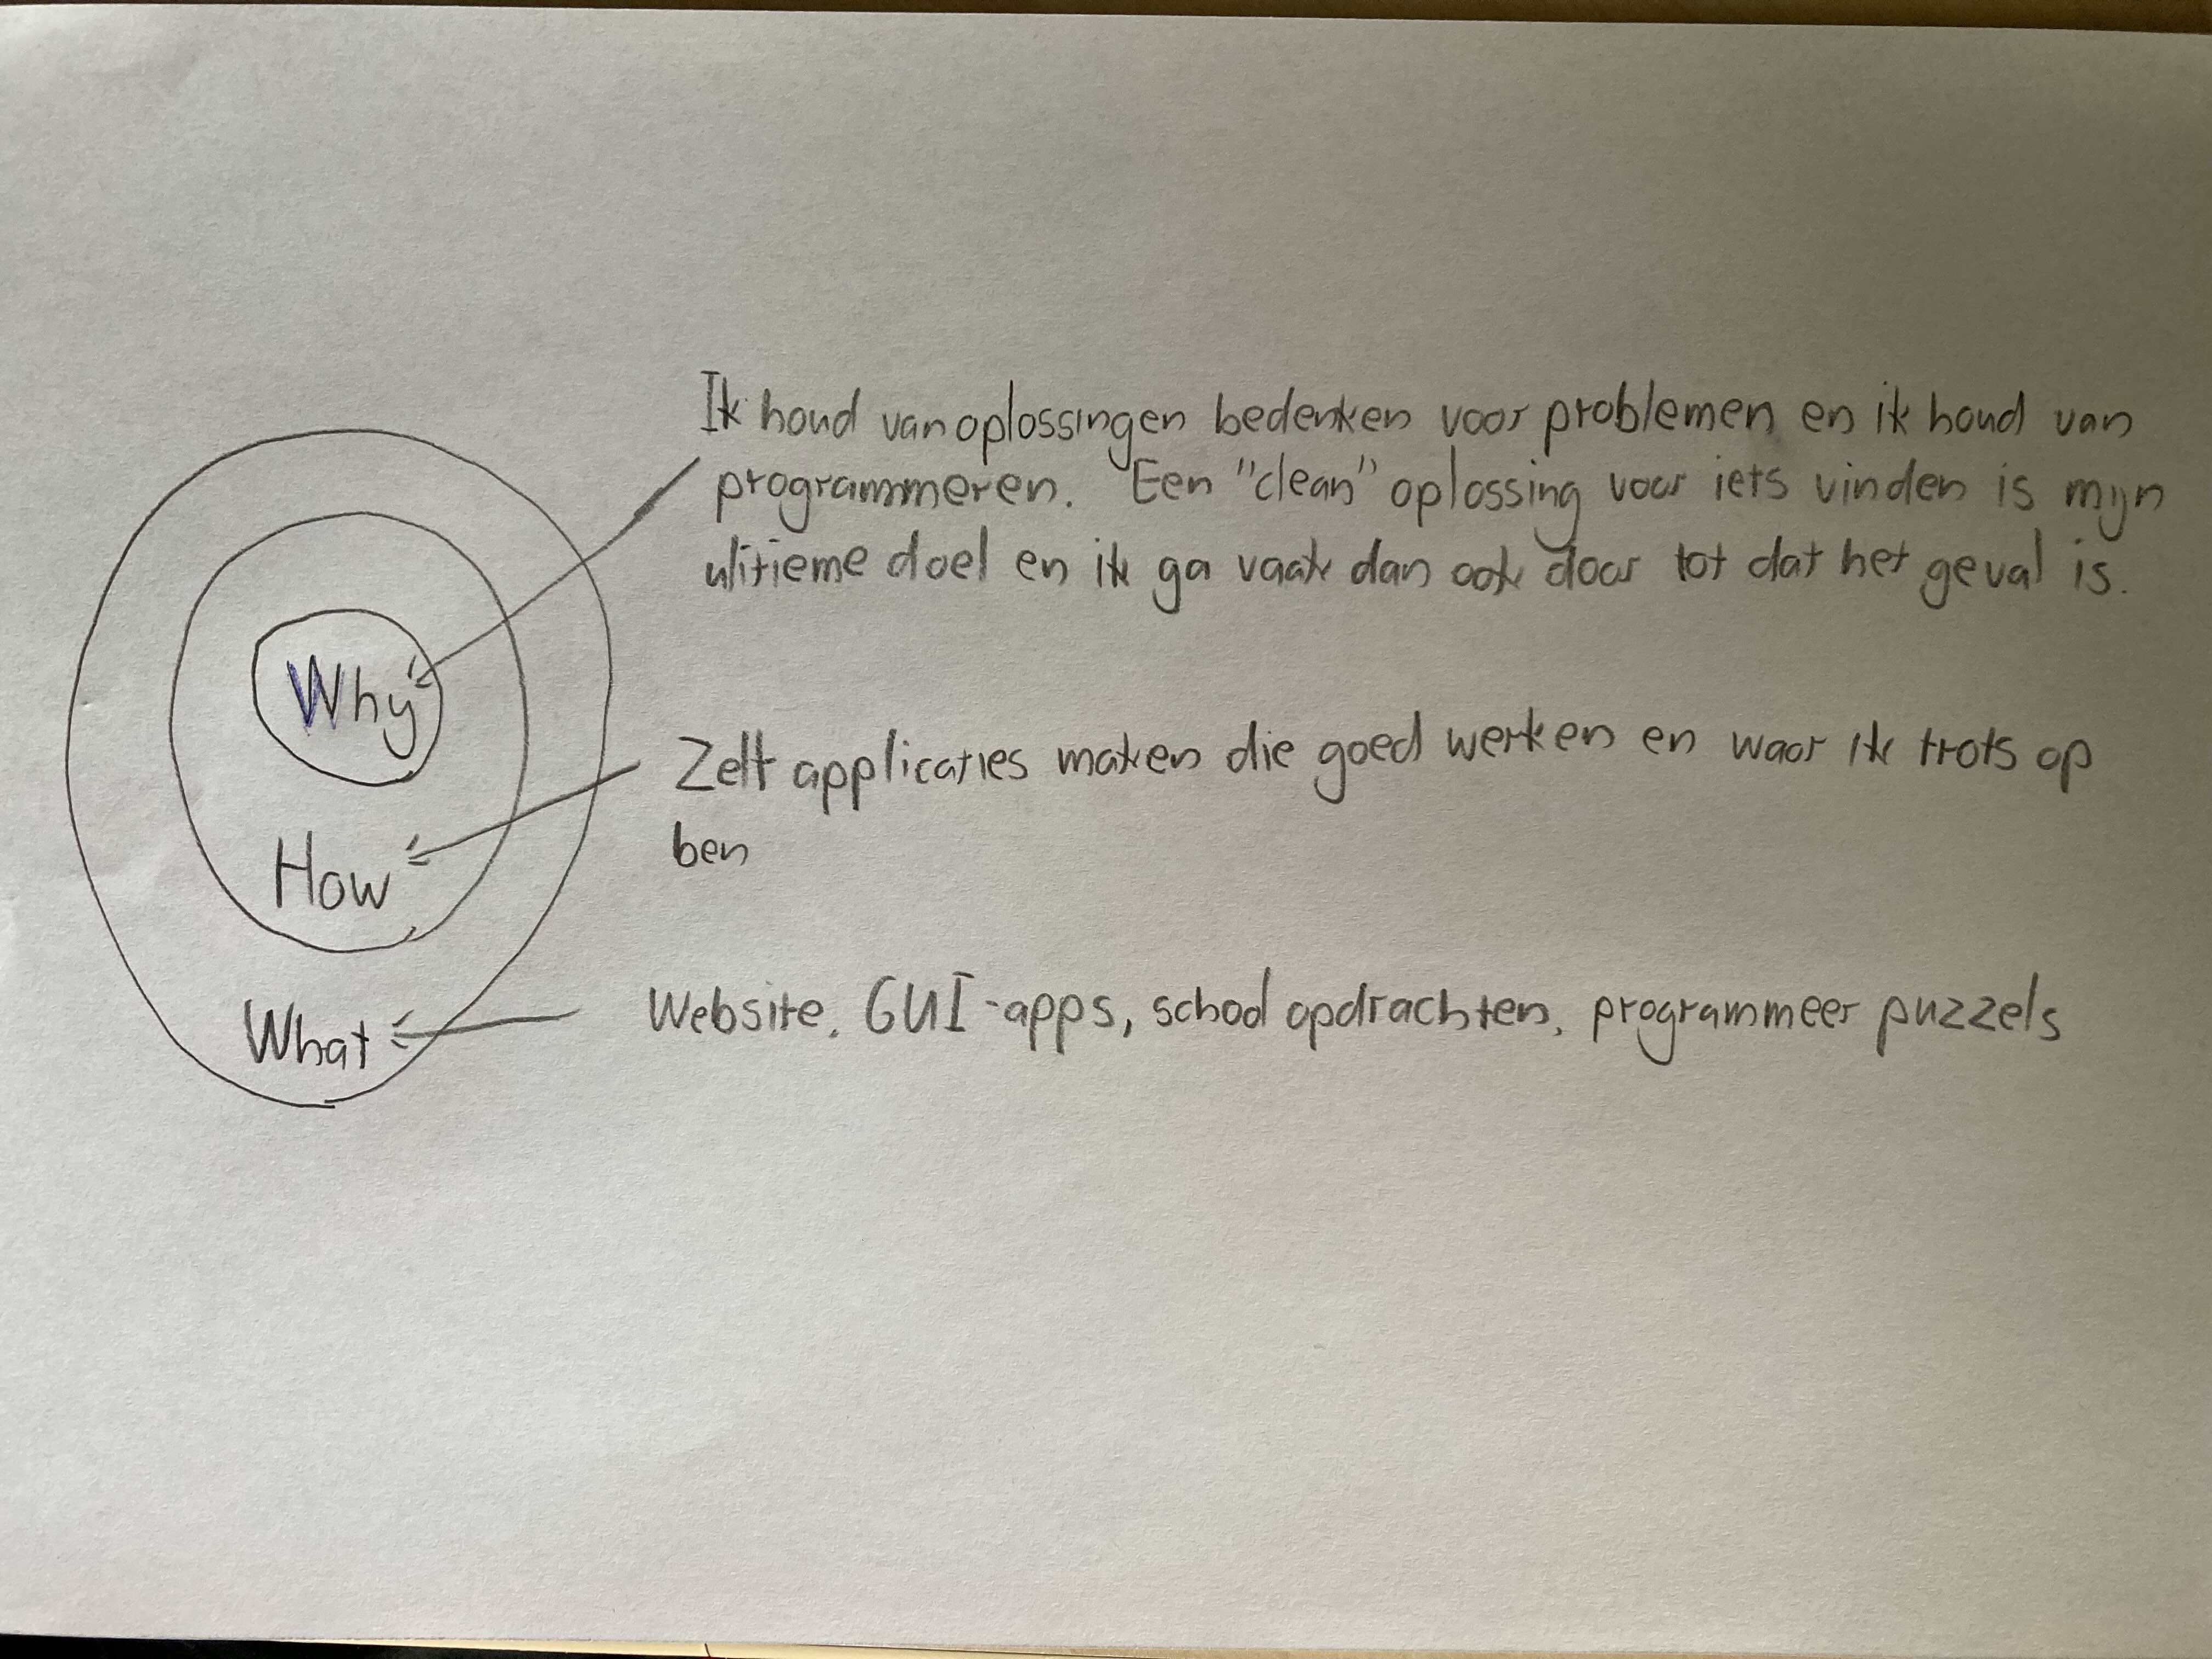 Ik houd van oplossingen bedenken voor problemen en ik houd van
programmeren. Een "clean" oplossing voor iets vinden is mijn
ulitieme doel en ik ga vaak dan ook door tot dat het geval is.
Why
Zelf applicaties maken die goed werken en waar ik trots op
ben
How
Website, GUI-apps, school opdrachten, programmeer puzzels
What